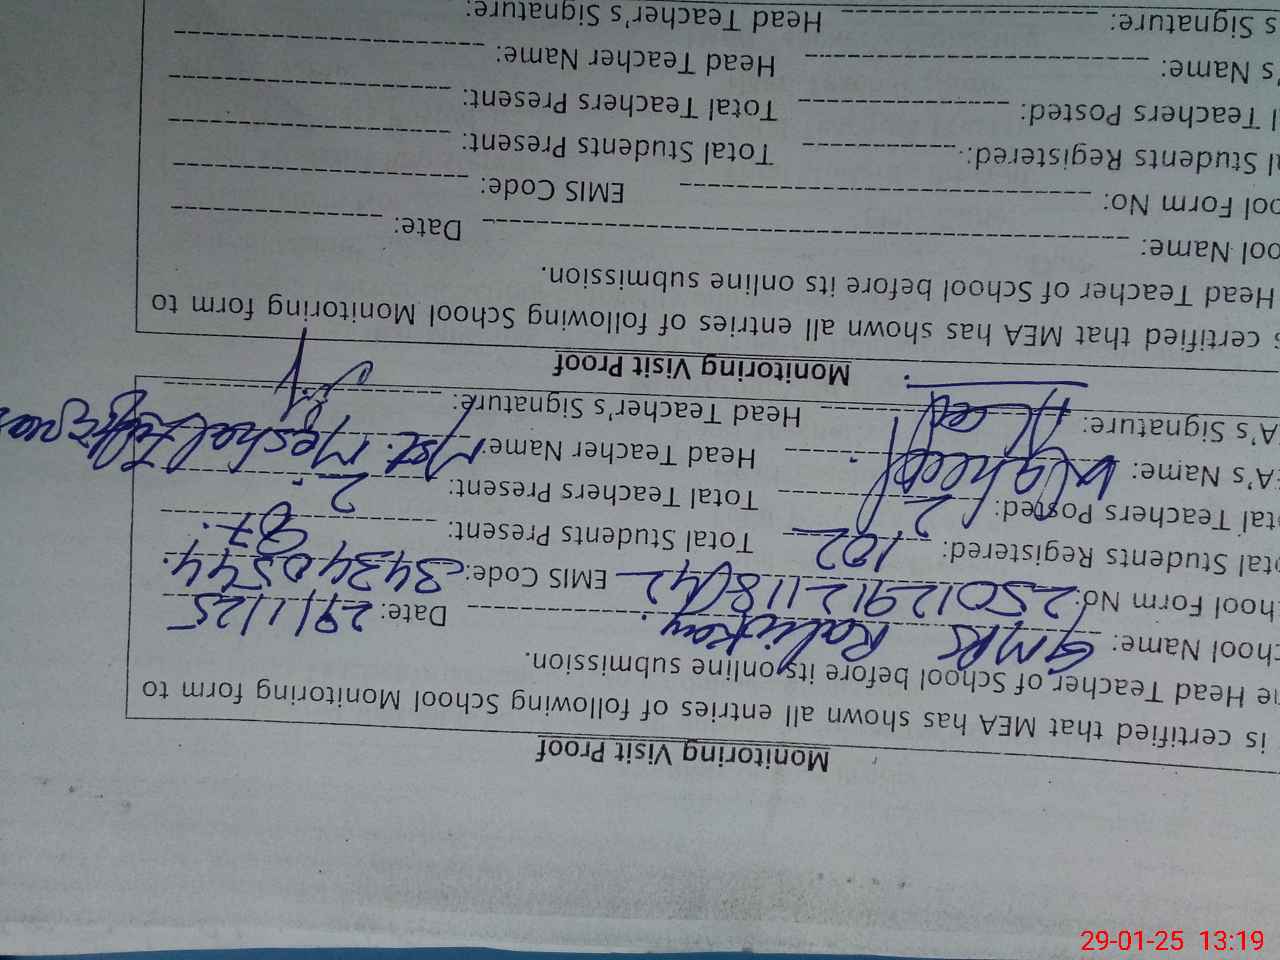 Monitoring Visit Proof
is certified that MEA has shown all entries of following School Monitoring form to
Head Teacher of School before its online submission.
School Name: GMPS Date: 29/1/25
School Form No: EMIS Code: 34340544
Total Students Registered: 102 Total Students Present: 87
Total Teachers Posted: 2 Total Teachers Present: 2
A's Name: Waheed Head Teacher Name: Mst.
A's Signature: Head Teacher's Signature:
Monitoring Visit Proof
certified that MEA has shown all entries of following School Monitoring form to
Head Teacher of School before its online submission.
ool Name: Date:
ool Form No: EMIS Code:
al Students Registered: Total Students Present:
l Teachers Posted: Total Teachers Present:
's Name: Head Teacher Name:
's Signature: Head Teacher's Signature:
29-01-25 13:19